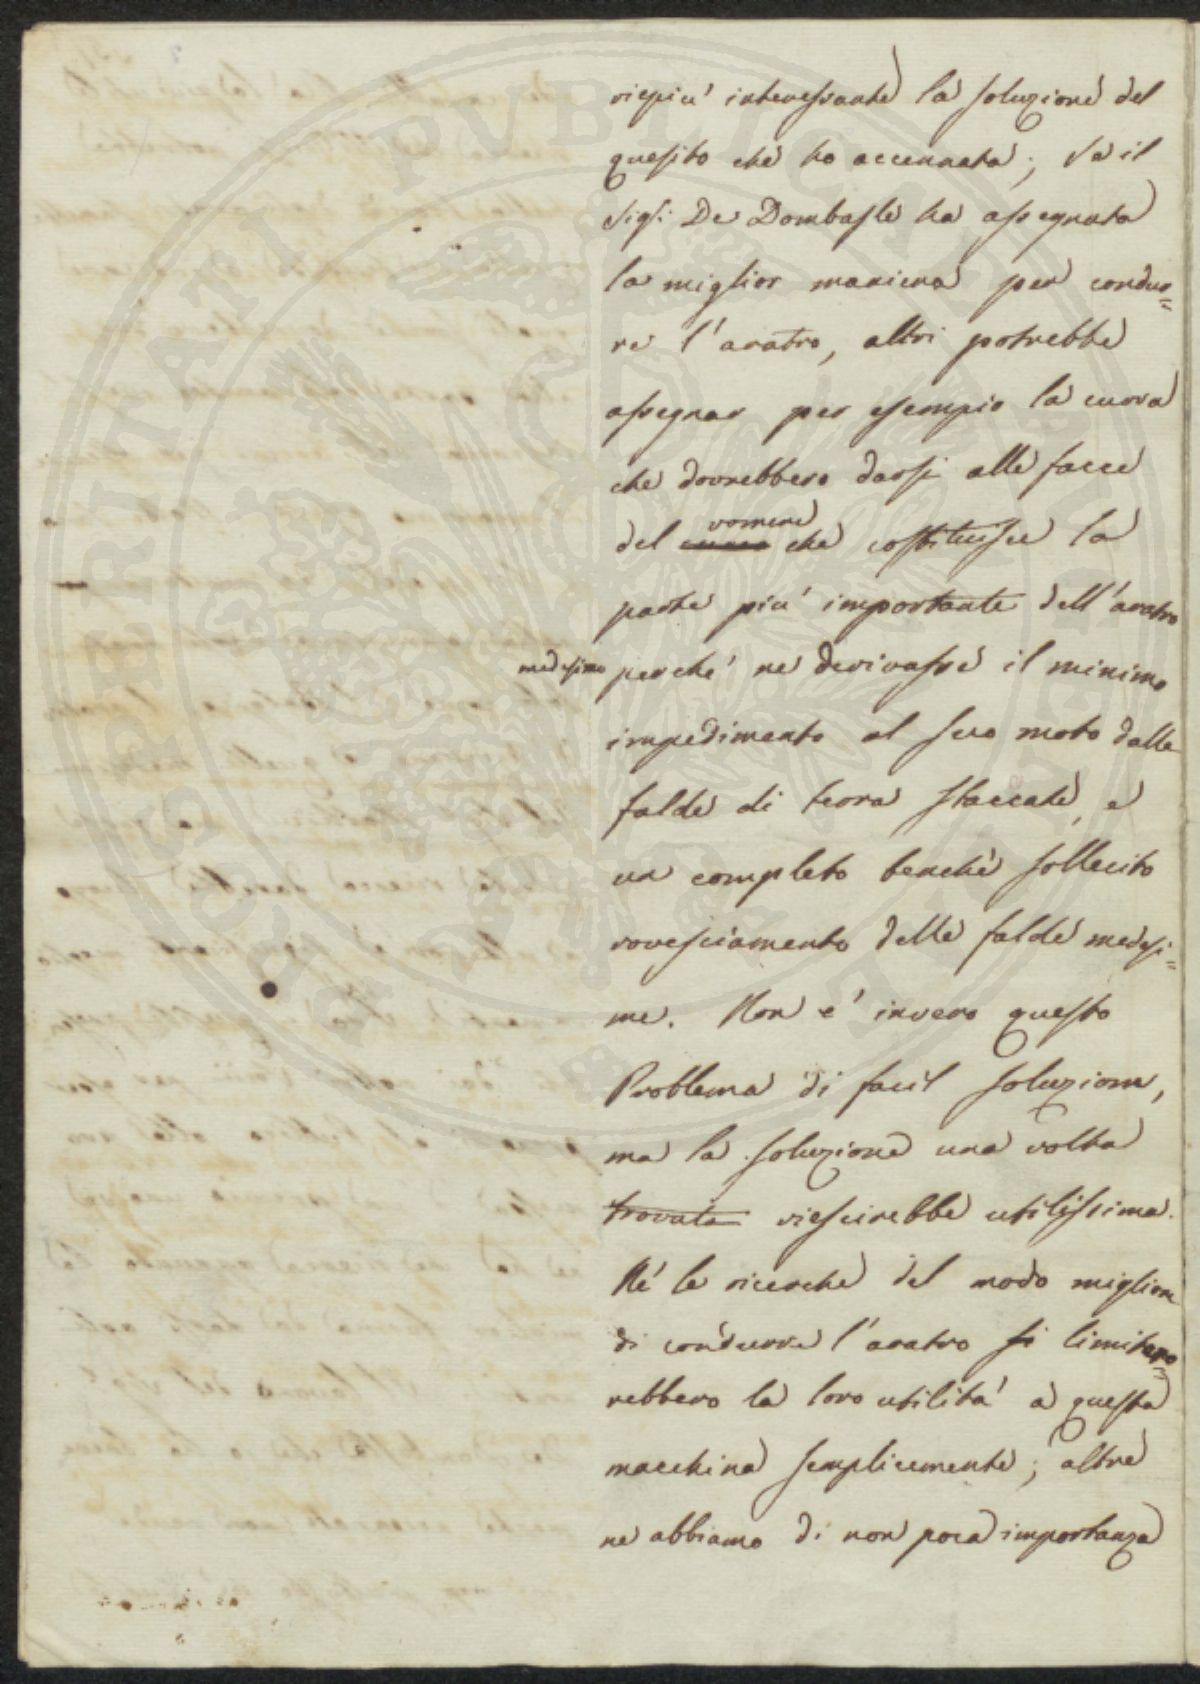 viepiu' interessante la soluzione del
quesito che ho accennata; Se il
Sigr: De Dombasle ha assegnata
la miglior maniera per condur=
re l'aratro, altri potrebbe
assegnar per esempio la curva
che dovrebbero darsi alle facce
vomere
del che costituisce la
parte piu' importante dell'aratro
medesimo perche' ne derivasse il minimo
impedimento al suo moto dalle
falde di terra staccate, e
un completo benche sollecito
rovesciamento delle falde medesi=
me. Non e' invero questo
Problema di facil soluzione,
ma la soluzione una volta
trovata riescirebbe utilissima.
Né le ricerche del modo migliore
di condurre l'aratro si
rebbero la loro utilita' a questa
macchina semplicemente; altre
ne abbiamo di non poca importanza
PROSPERITATI PVBLICAE AVGENDAE